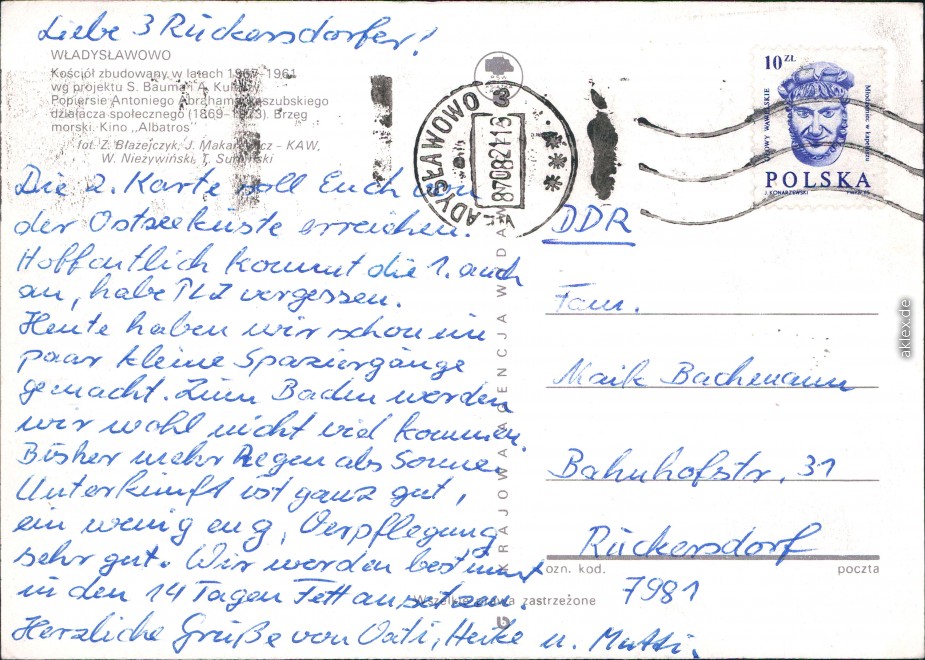 Liebe 3 Rückersdorfer!
WŁADYSŁAWOWO
Kościół zbudowany w latach 1957-1961
wg projektu S. Bauma i A. Kuleszy.
Popiersie Antoniego Abrahama kaszubskiego
działacza społecznego (1869-1923). Brzeg
morski. Kino „Albatros"
fot. Z. Błażejczyk, J. Makarewicz - KAW,
W. Nieżywiński, T. Sumiński
Die 2. Karte soll Euch von
der Ostseeküste erreichen.
Hoffentlich kommt die 1. auch
an, habe PLZ vergessen.
Heute haben wir schon ein
paar kleine Spaziergänge
gemacht. Zum Baden werden
wir wohl nicht viel kommen.
Bisher mehr Regen als Sonne.
Unterkunft ist ganz gut,
ein wenig eng, Verpflegung
sehr gut. Wir werden bestimmt
in den 14 Tagen Fett ansetzen.
Herzliche Grüße von Vati, Heike u. Mutti.
KRAJOWA AGENCJA WYDAW
Wszelkie prawa zastrzeżone
ADYSŁAWOWO
3
870821-13
10 ZŁ
GŁOWY WAWELSKIE
POLSKA
J. KONARZEWSKI
DDR
Fam.
Maik Bachmann
Bahnhofstr. 31
Rückersdorf
ozn. kod. poczta
7981
aklex.de